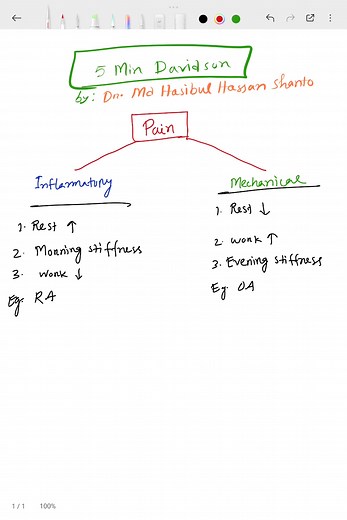 5 Min Davidson
by: Dr. Md Hasibul Hassan Shanto
Pain
Inflammatory
1. Rest ↑
2. Morning stiffness
3. work ↓
Eg. RA
Mechanical
1. Rest ↓
2. work ↑
3. Evening stiffness
Eg. OA
1 / 1 100%